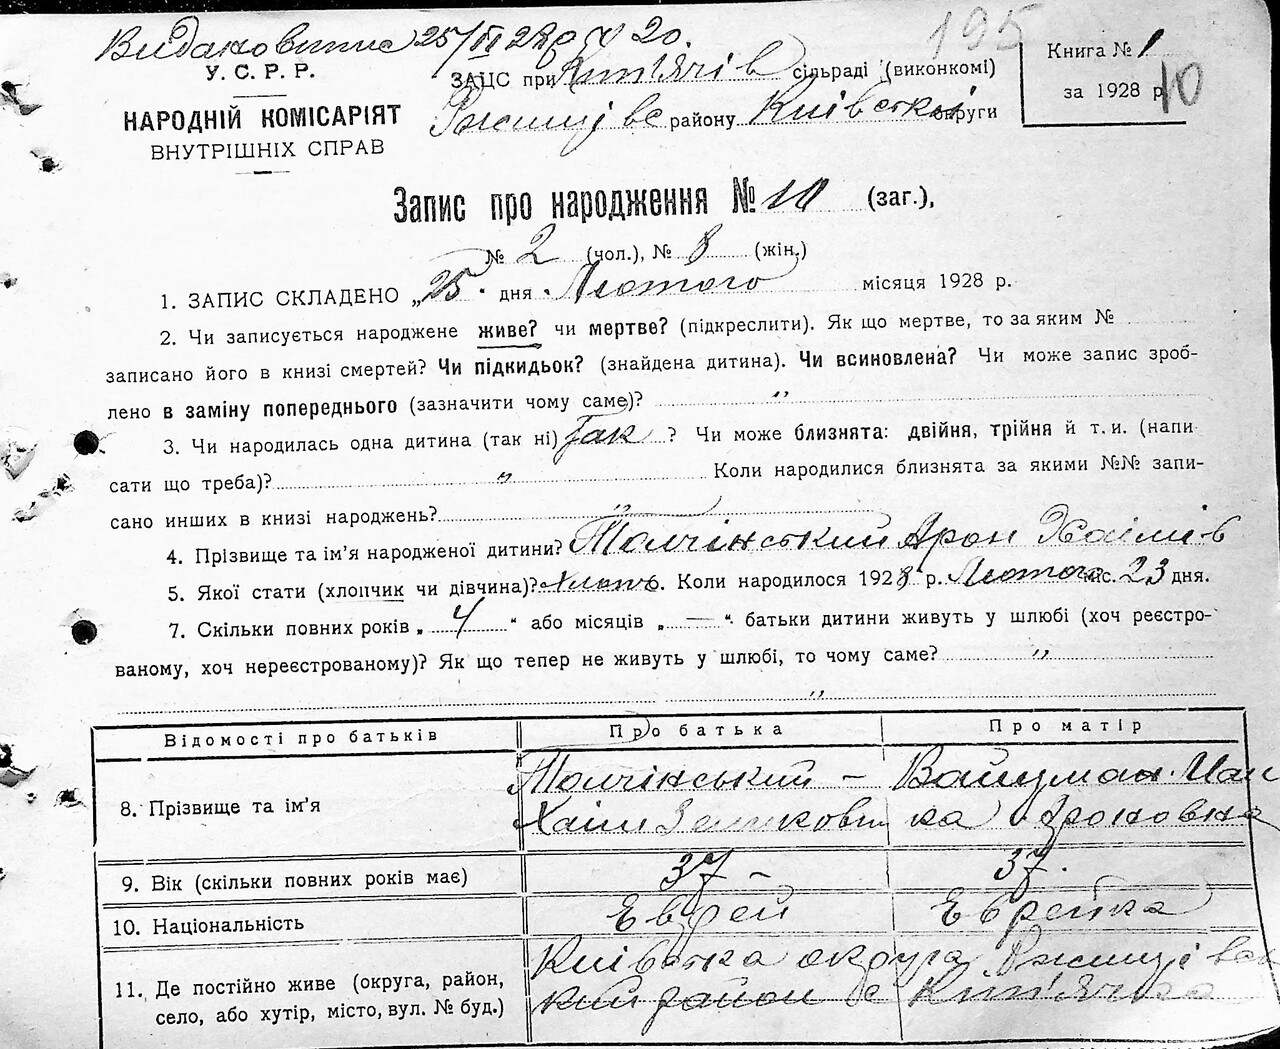 Видано витяг 25/II 28 р. № 20.
195
У. С. Р. Р.
НАРОДНІЙ КОМІСАРІЯТ
ВНУТРІШНІХ СПРАВ
ЗАЦС при сільраді (виконкомі)
району Київської округи
Книга № 1
за 1928 р.
10
Запис про народження № 10 (заг.),
№ 2 (чол.), № 8 (жін.)
1. ЗАПИС СКЛАДЕНО „25" дня Лютого місяця 1928 р.
2. Чи записується народжене живе? чи мертве? (підкреслити). Як що мертве, то за яким №
записано його в книзі смертей? Чи підкидьок? (знайдена дитина). Чи всиновлена? Чи може запис зроб-
лено в заміну попереднього (зазначити чому саме)? „
3. Чи народилась одна дитина (так ні) Так ? Чи може близнята: двійня, трійня й т. и. (напи
сати що треба)? „ Коли народилися близнята за якими №№ запи-
сано инших в книзі народжень? „
4. Прізвище та ім'я народженої дитини? Толчінський Арон Хаімів
5. Якої стати (хлопчик чи дівчина)? Хлоп. Коли народилося 1928 р. Лютого міс. 23 дня.
7. Скільки повних років „ 4 " або місяців „ — ". батьки дитини живуть у шлюбі (хоч реєстро-
ваному, хоч нереєстрованому)? Як що тепер не живуть у шлюбі, то чому саме? „
„
Відомості про батьків Про батька Про матір
8. Прізвище та ім'я Толчінський – Хаім Вайцман Ароновна
9. Вік (скільки повних років має) 37 – 37.
10. Національність Еврей Еврейка
11. Де постійно живе (округа, район,
село, або хутір, місто, вул. № буд.) Київська округа район с